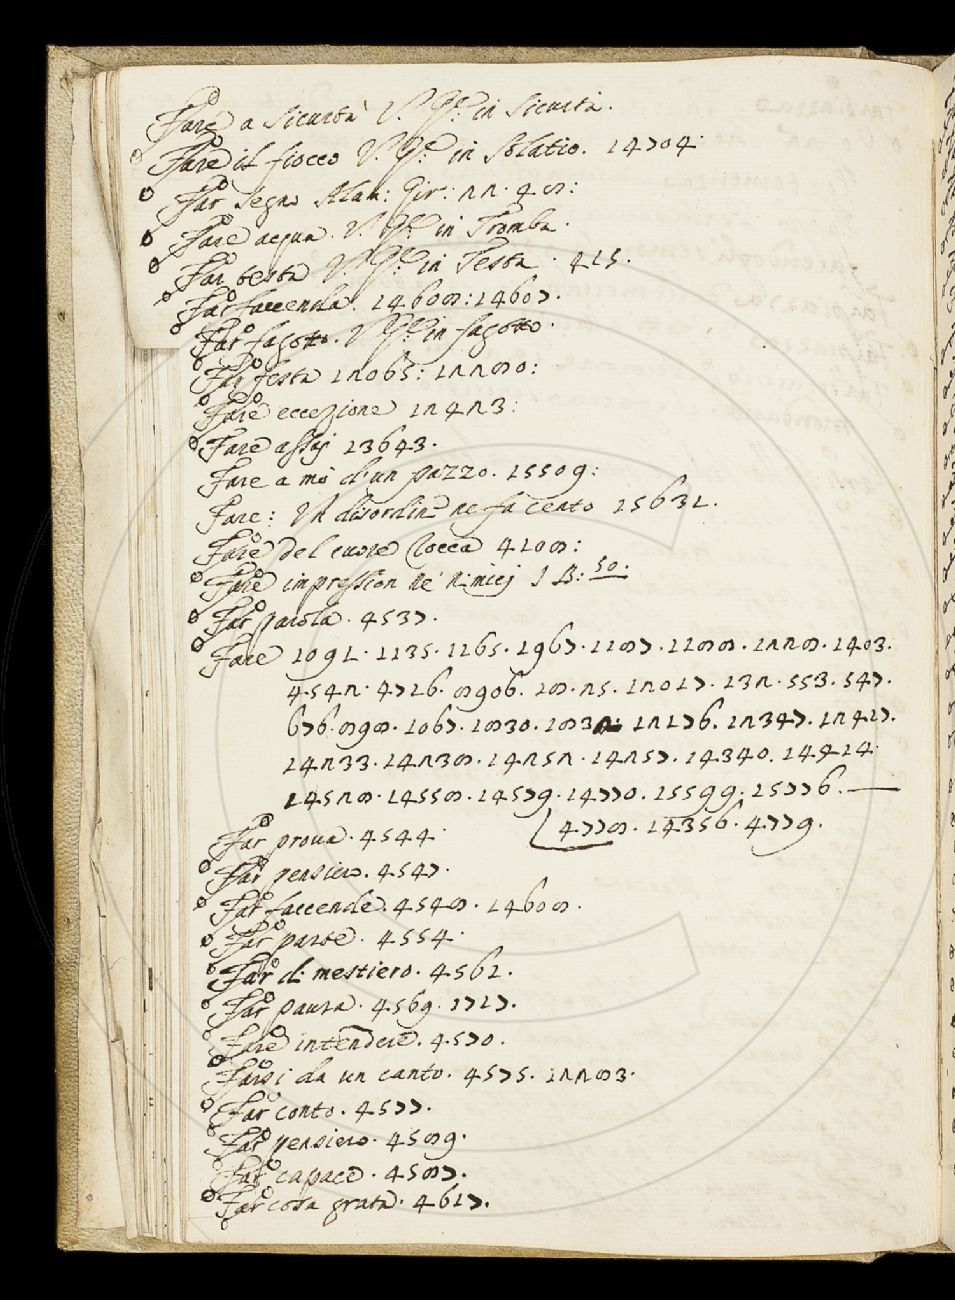 Fare a Sicurtà V. Ge: in Sicurtà.
Fare il fiocco V. Ge: in Solatio. 14704.
Far segno Alam: Gir: 22. 48:
Fare acqua. V. Ge: in Tromba.
Far testa V. Ge: in Testa. 415.
Far faccenda. 14608:14607.
Far fagotto. V. Ge: in fagotto.
Far festa 12065: 12280:
Fare eccezione 12423:
Fare assai 13643.
Fare a mò d'un pazzo. 15509:
Fare: Un disordin ne fa cento 15631.
Fare del cuore Rocca 4108:
Fare impression ne' nimici 1 B: 50.
Far parola. 4537.
Fare 1091. 1135. 1165. 1967. 1187. 1188. 1228. 1403.
4542. 4716. 8906. 18. 25. 12017. 132. 553. 547.
676. 898. 1067. 1830. 1832: 12176. 12347. 12417.
14233. 14238. 14252. 14257. 14340. 14414.
14528. 14558. 14579. 14770. 15599. 15776. —
4778. 14356. 4779.
Far proua. 4544.
Far pensiero. 4547.
Far faccende. 4548. 14608.
Far parte. 4554.
Far di mestiero. 4561.
Far paura. 4569. 1717.
Fare intendere. 4570.
Farsi da un canto. 4575. 12283.
Far conto. 4577.
Far pensiero. 4589.
Far capace. 4587.
Far cosa grata. 4617.